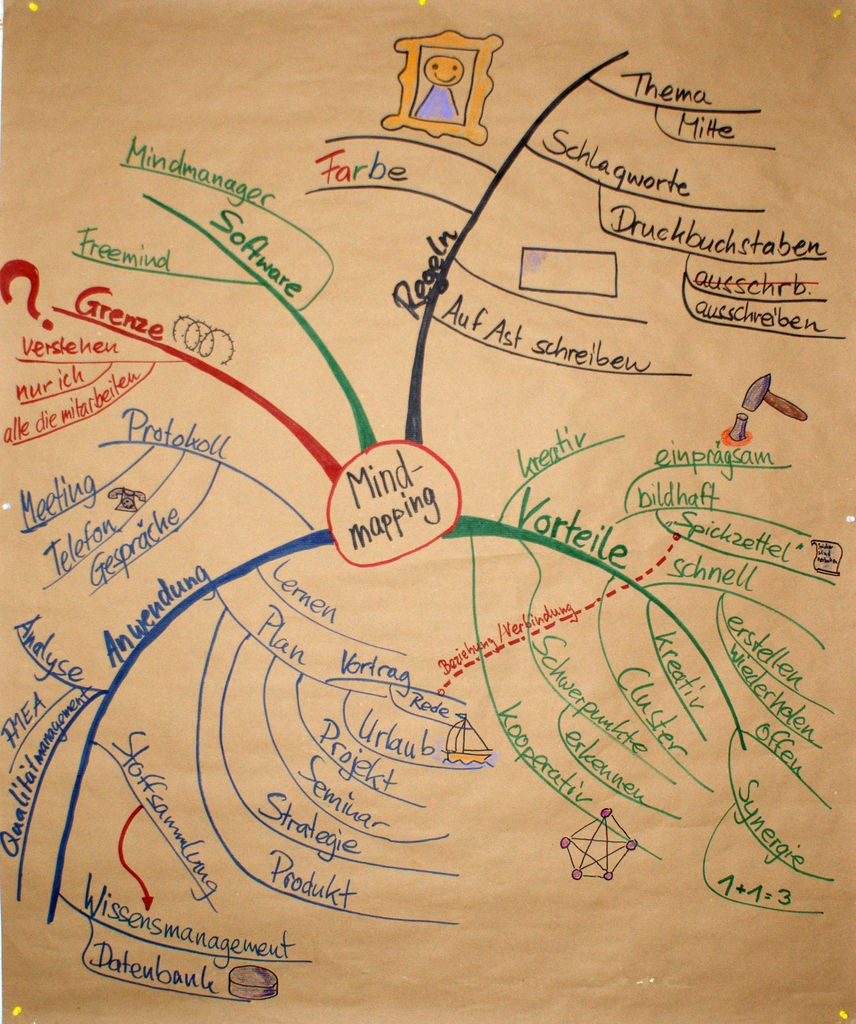 Mind-
mapping
Regeln
Thema
Mitte
Schlagworte
Druckbuchstaben
ausschrb.
ausschreiben
Auf Ast schreiben
Farbe
Software
Mindmanager
Freemind
Grenze
?
verstehen
nur ich
alle die mitarbeiten
Vorteile
kreativ
einprägsam
bildhaft
„Spickzettel"
schnell
erstellen
wiederholen
offen
Synergie
1+1=3
kreativ
Cluster
Schwerpunkte
erkennen
kooperativ
Beziehung/Verbindung
Anwendung
Protokoll
Meeting
Telefon
Gespräche
Lernen
Plan
Vortrag
Rede
Urlaub
Projekt
Seminar
Strategie
Produkt
Analyse
FMEA
Qualitätmanagement
Stoffsammlung
Wissensmanagement
Datenbank